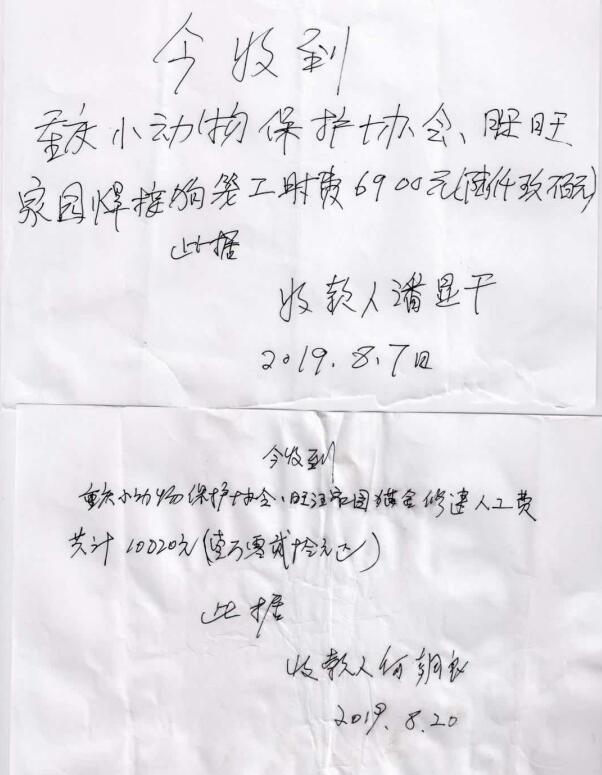 今收到
重庆小动物保护协会、旺旺
家园焊接狗笼工时费6900元(陆仟玖佰元)
此据
收款人潘显干
2019.8.7日
今收到
重庆小动物保护协会、旺旺家园猫舍修建人工费
共计10020元(壹万零贰拾元正)
此据
收款人何朝
2019.8.20